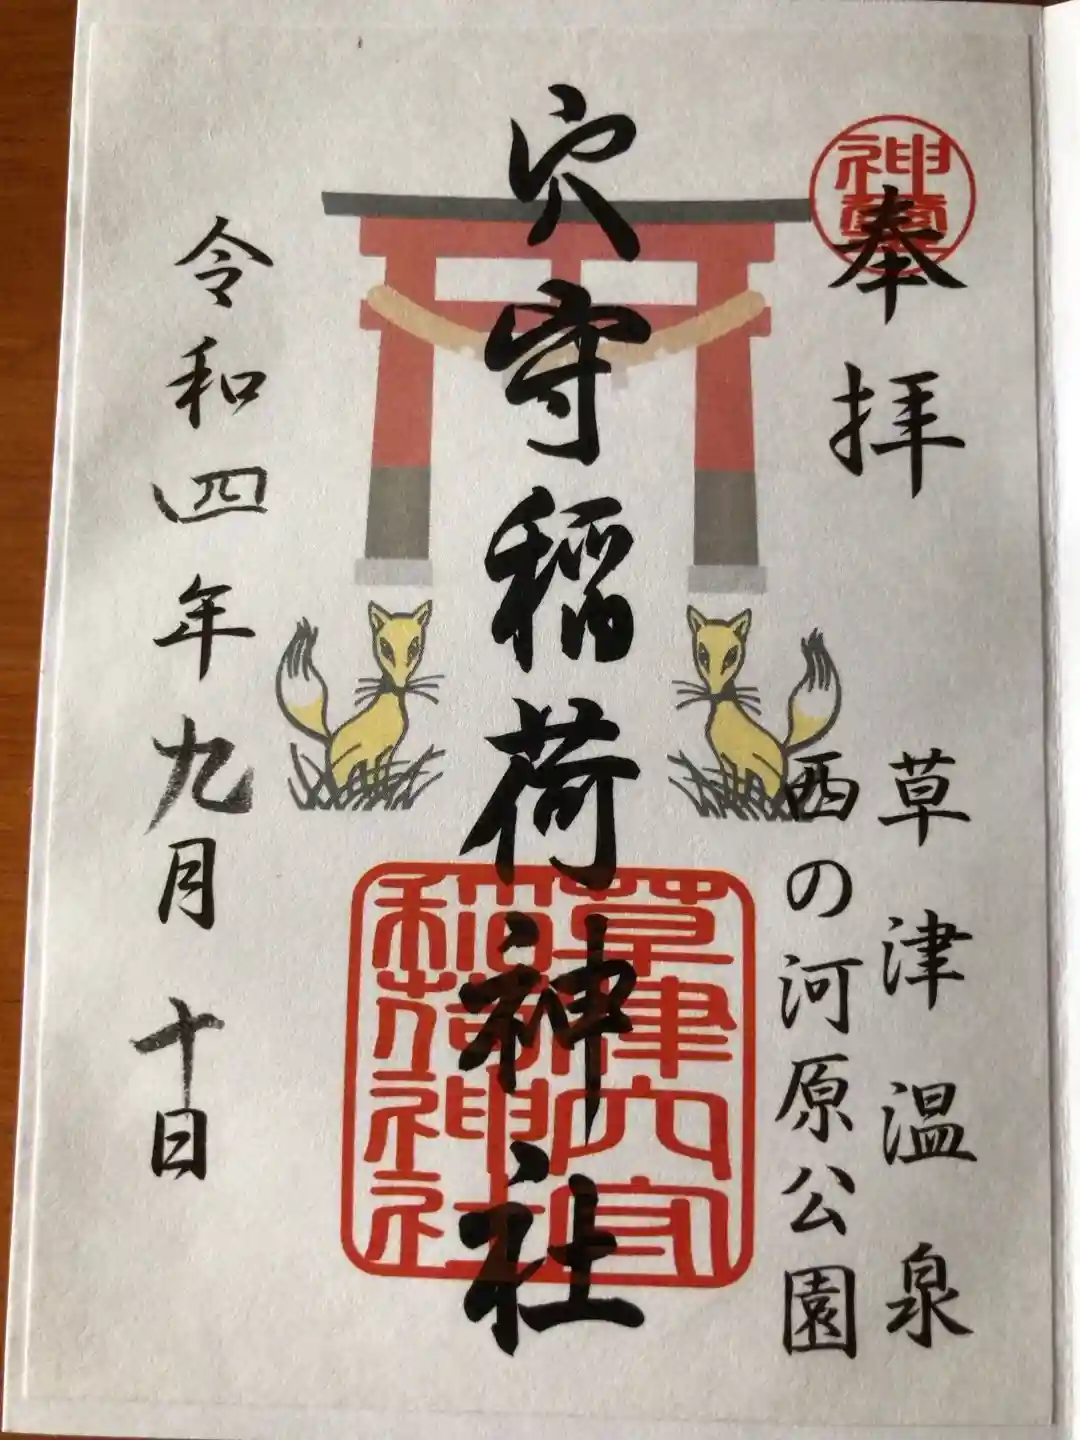 奉拝
草津温泉
西の河原公園
穴守稲荷神社
草津穴守
稲荷神社
令和四年九月十日